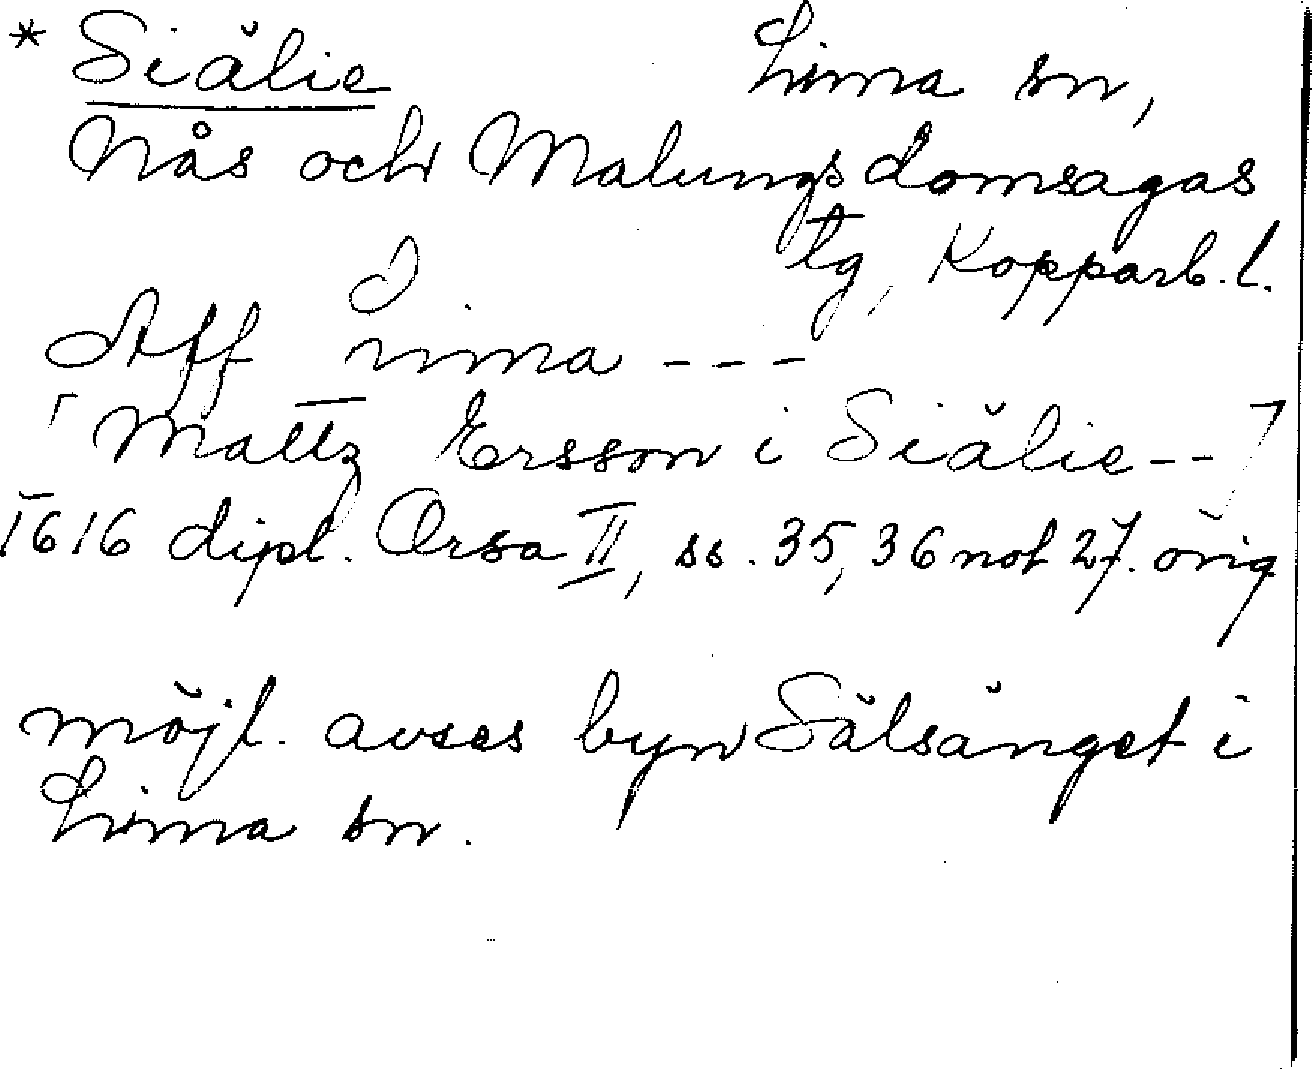 * Siälie Lima sn,
Nås och Malungs domsagas
tg, Kopparb. l.
Aff Lima ---
[Mattz Ersson i Siälie--]
1616 dipl. Orsa II, ss. 35, 36 not 27. orig
möjl. avses byn Sälsänget i
Lima sn.